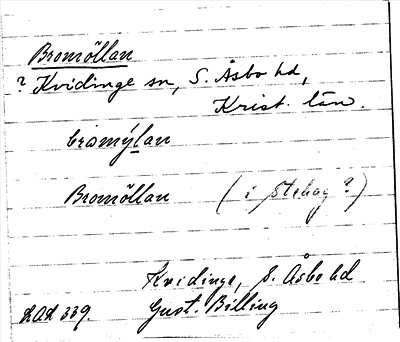 Bromöllan
? Kvidinge sn, S. Åsbo hd,
Krist. län.
bromýlan
Bromöllan (i Stehag?)
Kvidinge, S. Åsbo hd
LAL 339. Gust. Billing